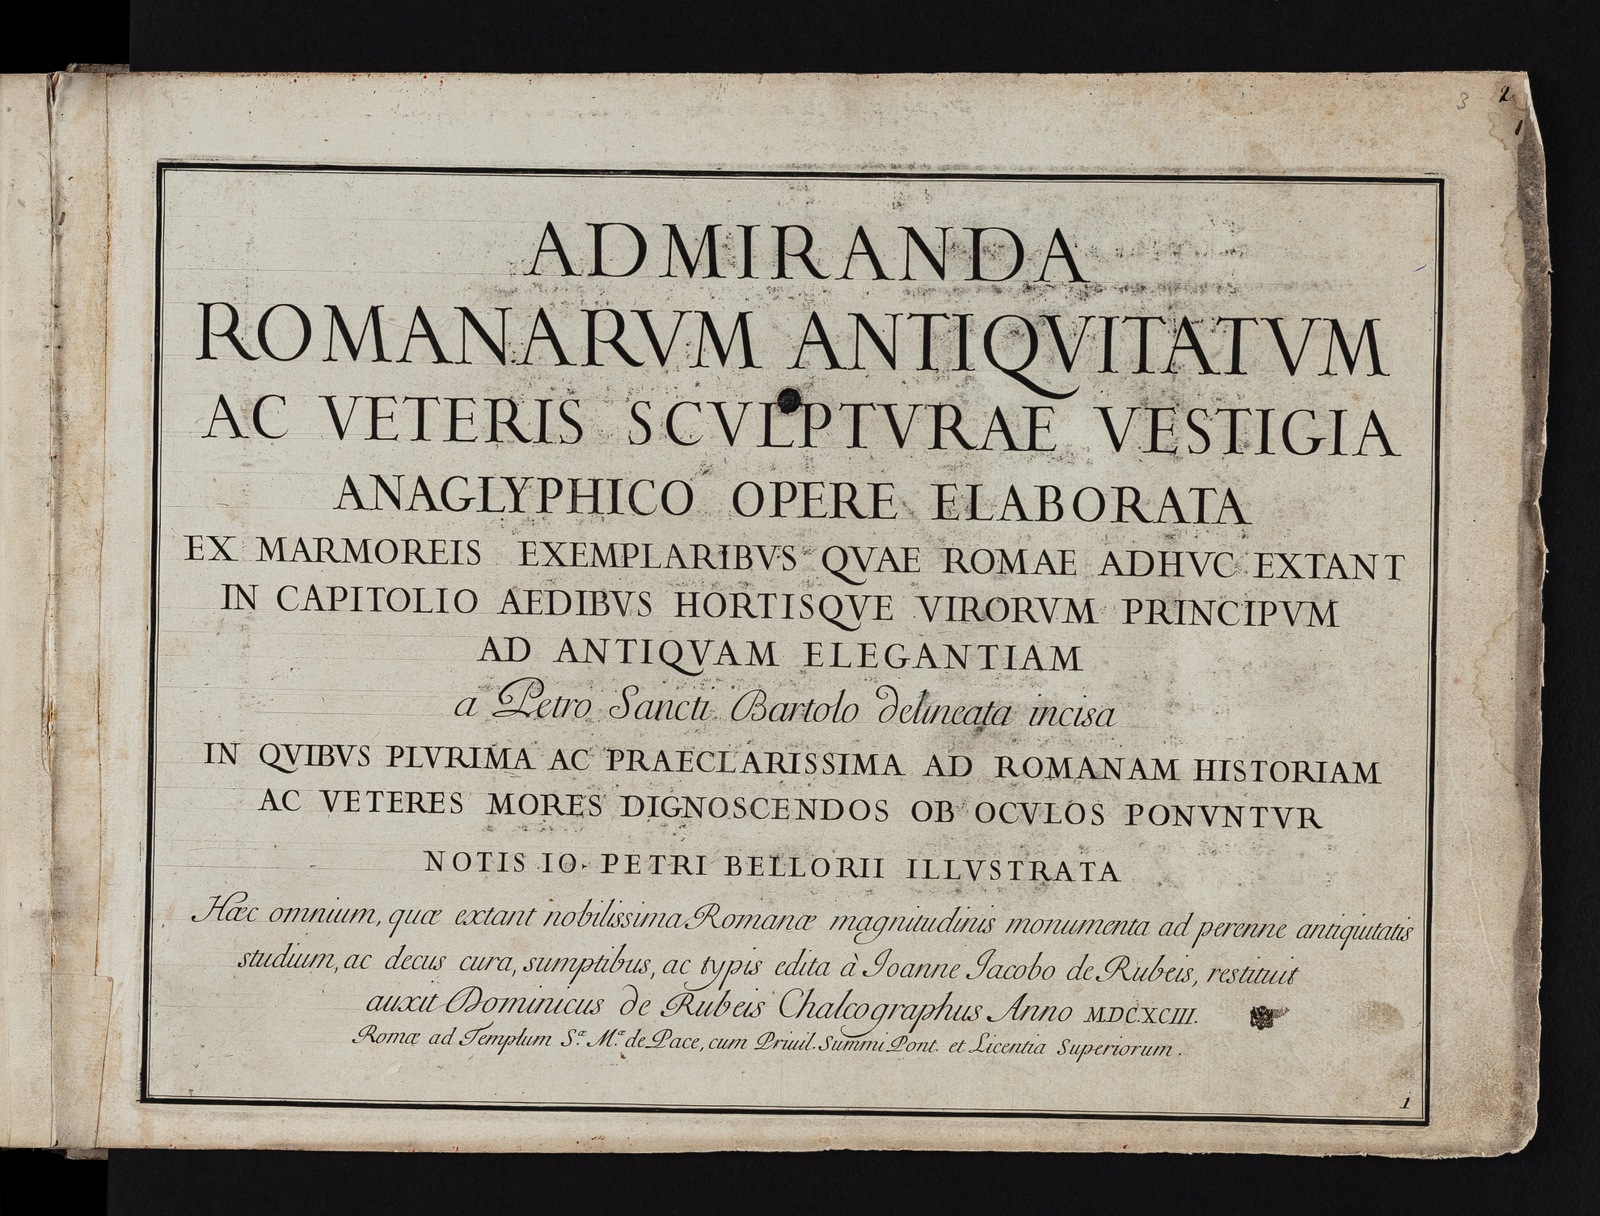 3 2
1
ADMIRANDA
ROMANARVM ANTIQVITATVM
AC VETERIS SCVLPTVRAE VESTIGIA
ANAGLYPHICO OPERE ELABORATA
EX MARMOREIS EXEMPLARIBVS QVAE ROMAE ADHVC EXTANT
IN CAPITOLIO AEDIBVS HORTISQVE VIRORVM PRINCIPVM
AD ANTIQVAM ELEGANTIAM
a Petro Sancti Bartolo delineata incisa
IN QVIBVS PLVRIMA AC PRAECLARISSIMA AD ROMANAM HISTORIAM
AC VETERES MORES DIGNOSCENDOS OB OCVLOS PONVNTVR
NOTIS IO. PETRI BELLORII ILLVSTRATA
Hæc omnium, quæ extant nobilissima Romanæ magnitudinis monumenta ad perenne antiquitatis
studium, ac decus cura, sumptibus, ac typis edita à Ioanne Iacobo de Rubeis, restituit
auxit Dominicus de Rubeis Chalcographus Anno MDCXCIII.
Romæ ad Templum S.æ M.æ de Pace, cum Priuil. Summi Pont. et Licentia Superiorum.
1